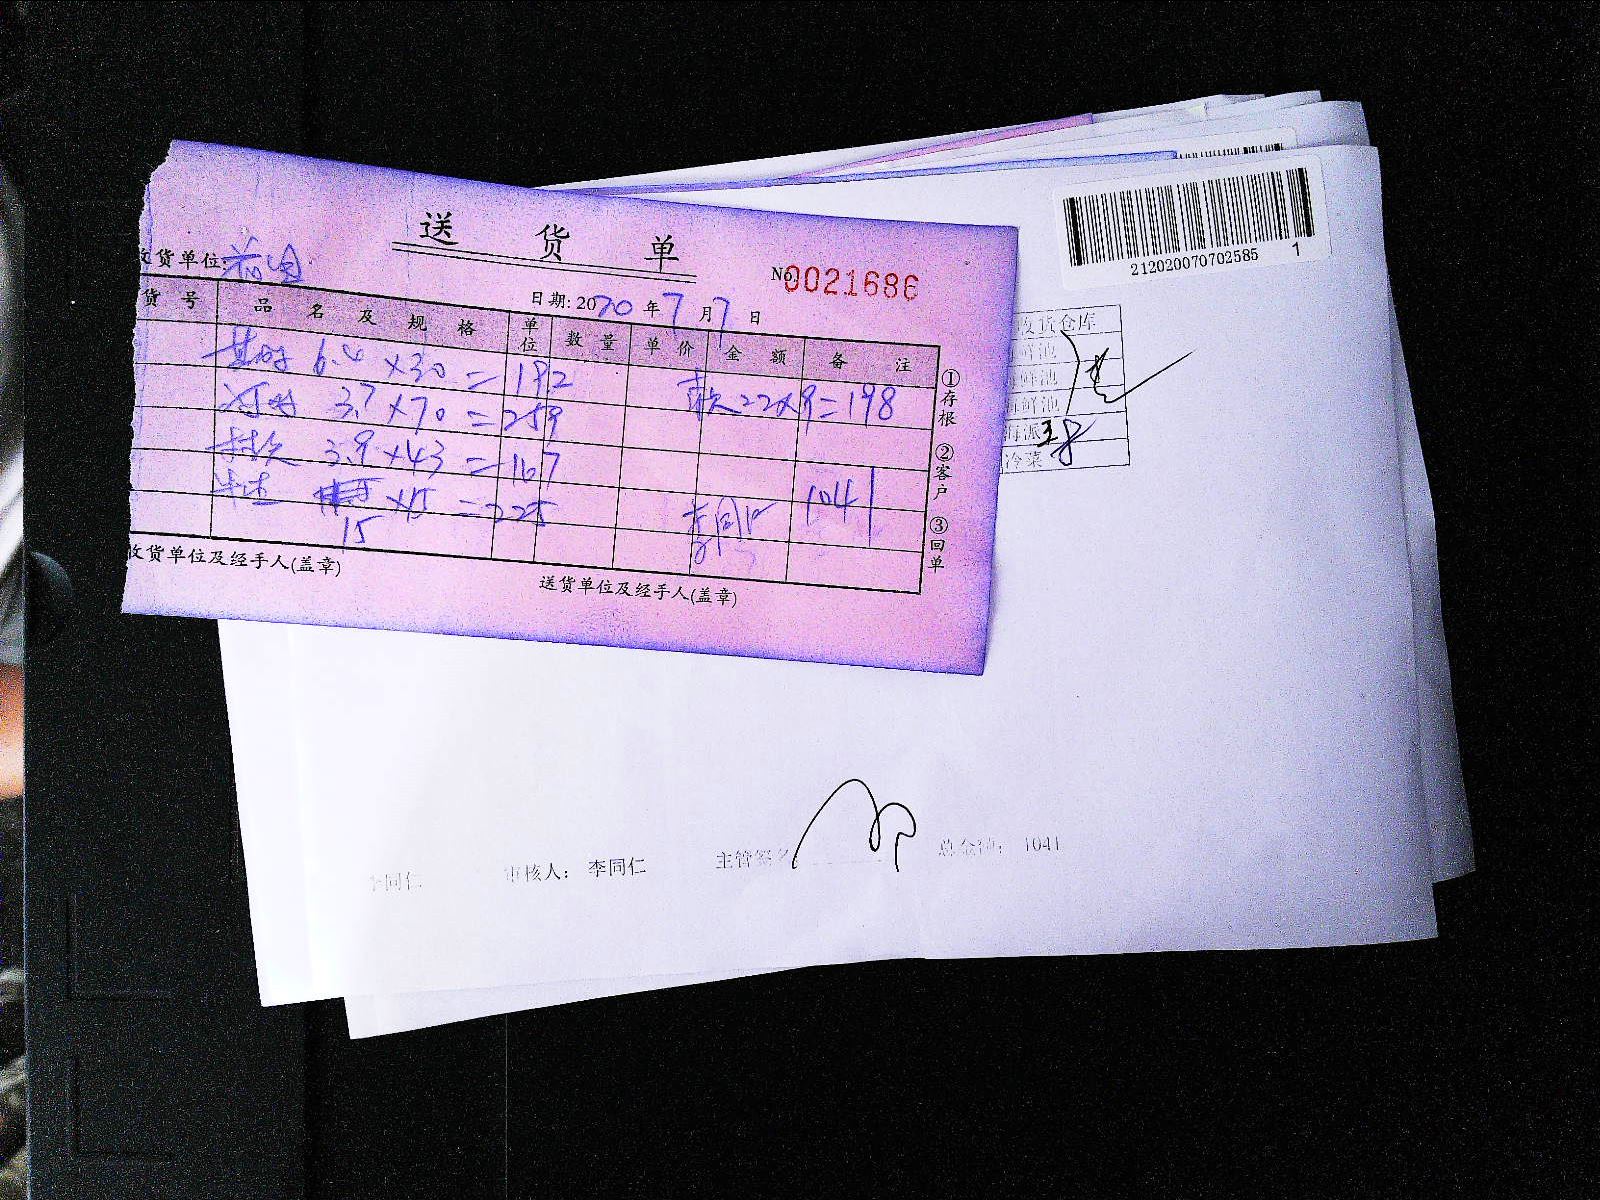 送 货 单
收货单位:
No 0021686
日期: 2020 年 7 月 7 日
货 号 品 名 及 规 格 单位 数 量 单 价 金 额 备 注
6.4 × 30 = 192
22×9=198
3.7 × 70 = 259
3.9 × 43 = 167
×15 = 225
1041
15
李同仁
①存根 ②客户 ③回单
收货单位及经手人(盖章)
送货单位及经手人(盖章)
212020070702585 1
收货仓库
鲜池
海鲜池
海鲜池
海派
冷菜
李同仁 审核人: 李同仁 主管签名 总金额: 1041